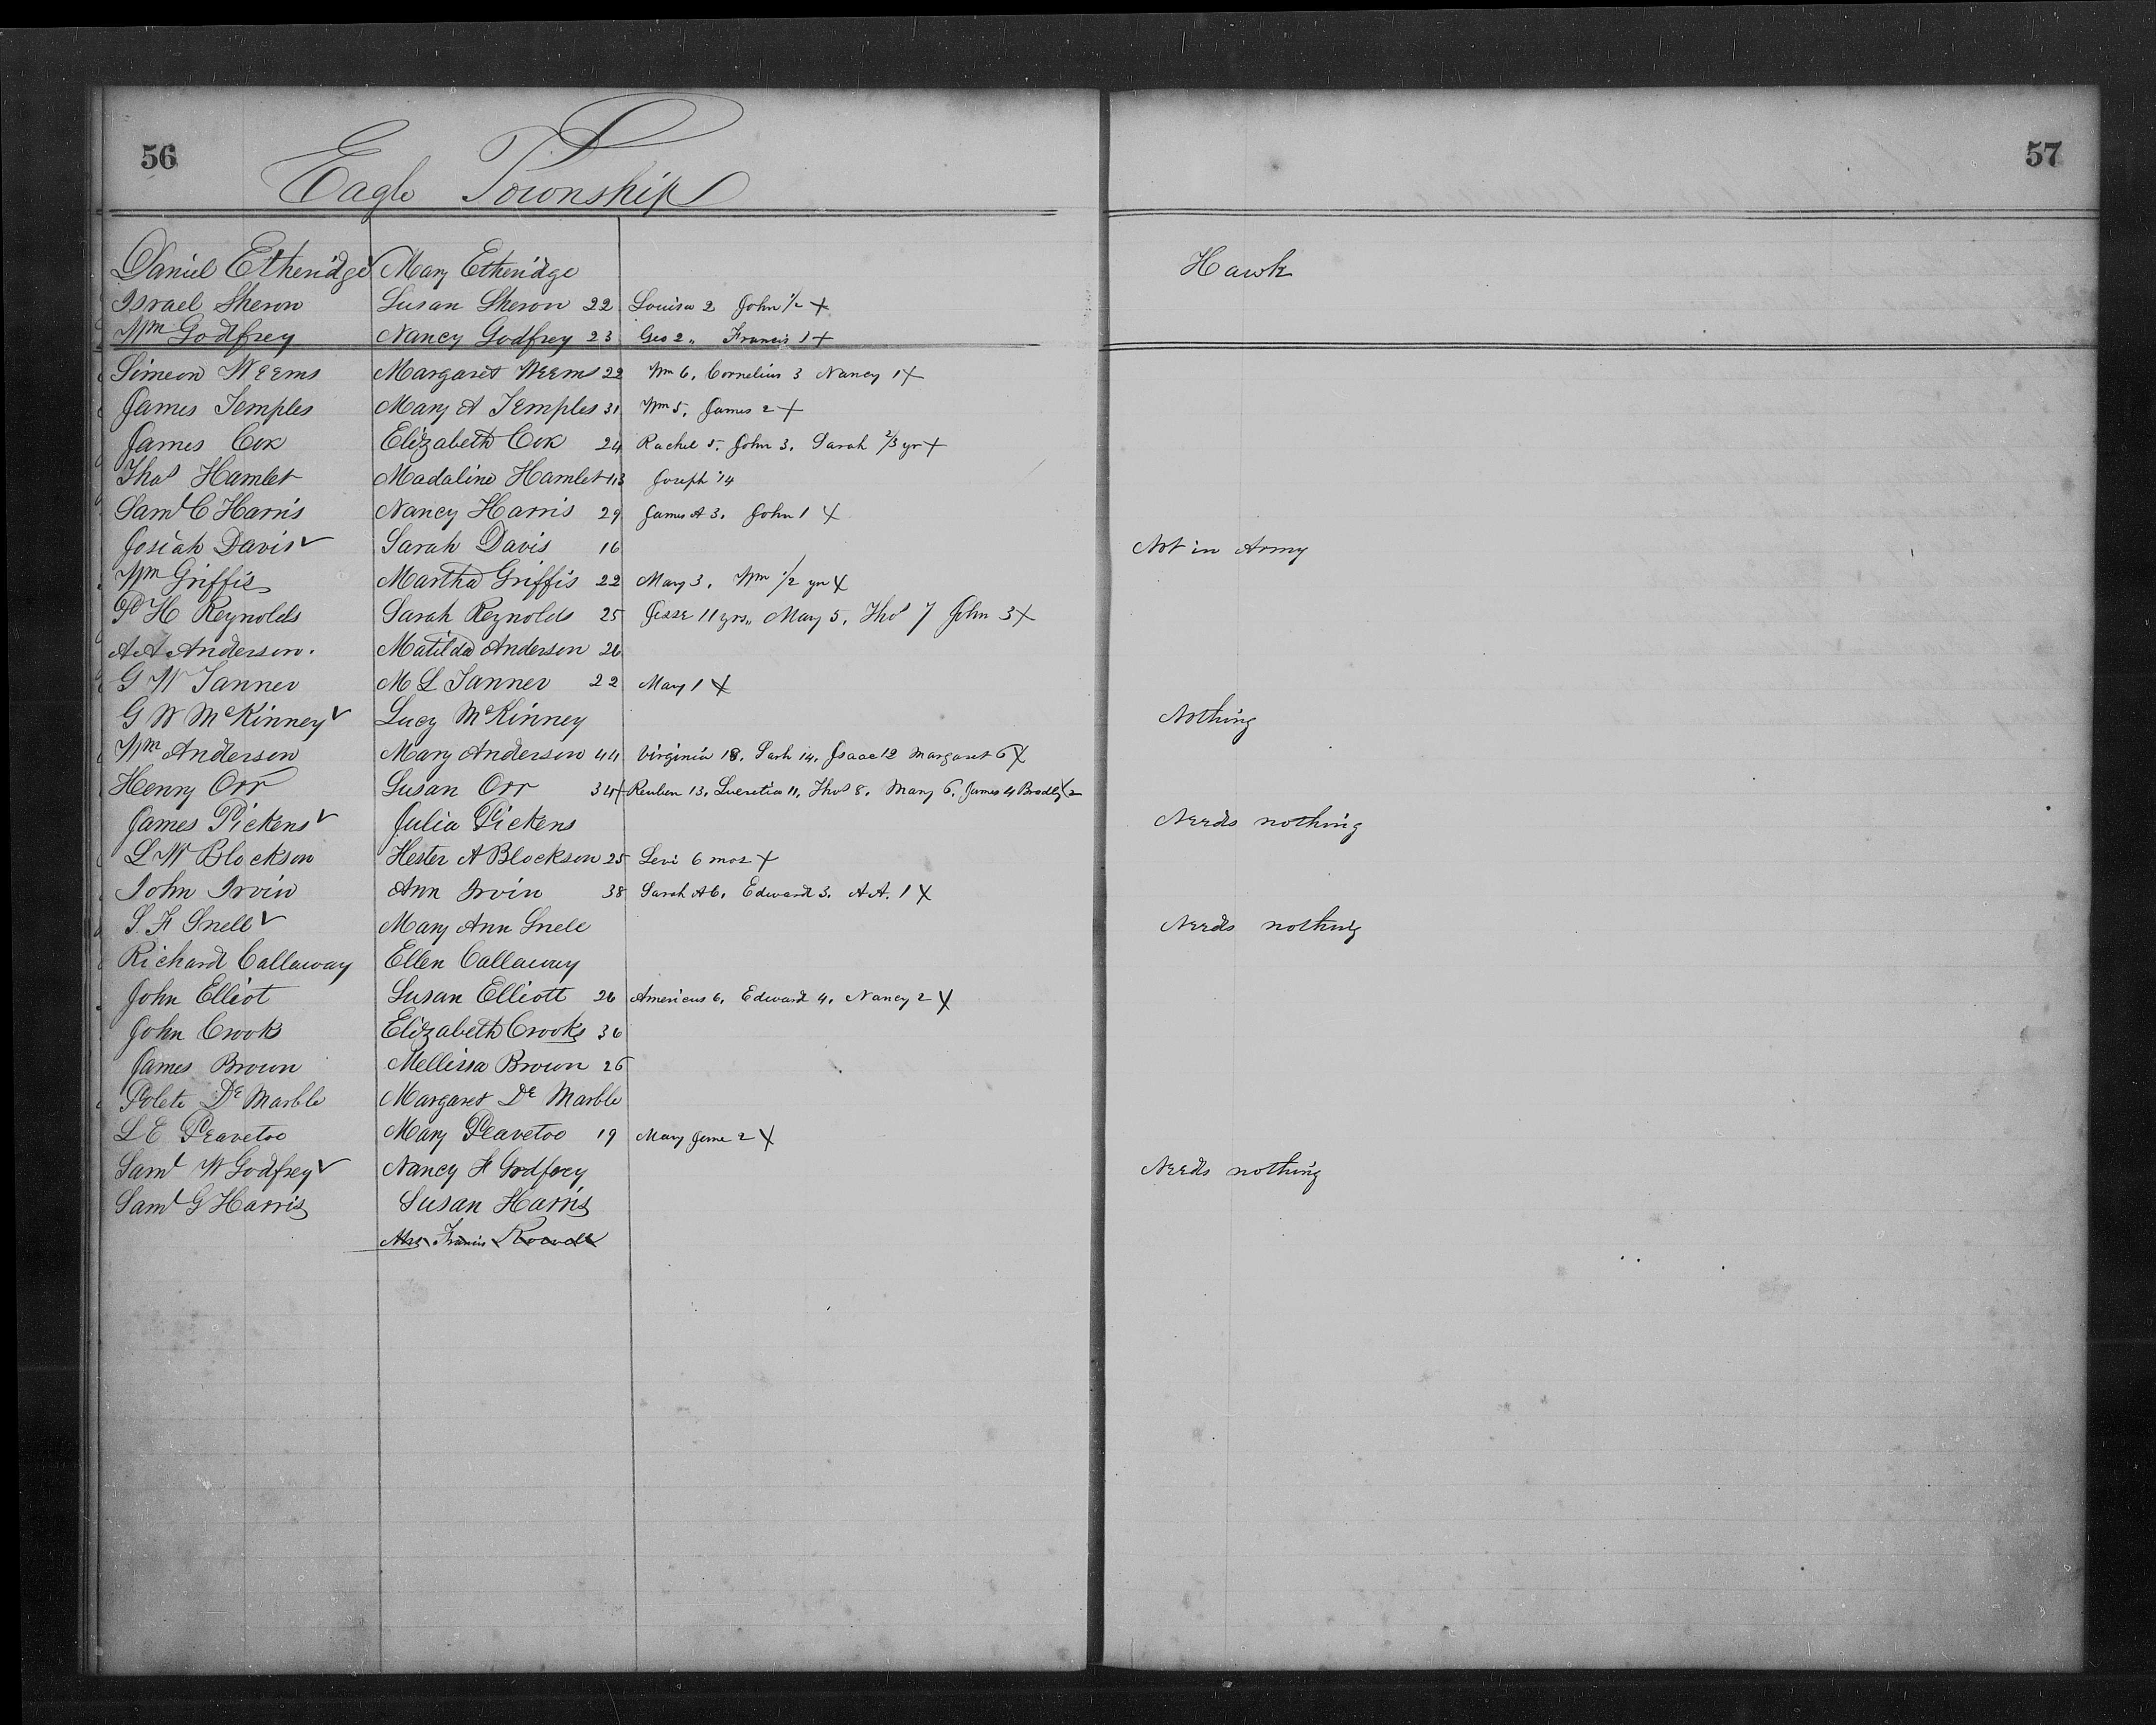 56
57
Eagle Township
Daniel Etheridge ✓ Mary Etheridge Hawk
Israel Sheron Susan Sheron 22 Louisa 2 John 1/2 +
Wm Godfrey Nancy Godfrey 23 Geo 2 " Francis 1 +
Simeon Weems Margaret Weems 22 Wm 6. Cornelius 3 Nancy 1 +
James Temples Mary A Temples 31 Wm 5. James 2 +
James Cox Elizabeth Cox 24 Rachel 5. John 3. Sarah 2/3 yr +
Thos Hamlet Madaline Hamlet 43 Joseph 14
Saml C Harris Nancy Harris 29 James A 3. John 1 X
Josiah Davis ✓ Sarah Davis 16 Not in Army
Wm Griffis Martha Griffis 22 Mary 3. Wm 1/2 yr X
P H Reynolds Sarah Reynolds 25 Jesse 11 yrs " Mary 5. Thos 7 John 3 X
A A Anderson. Matilda Anderson 26
G W Tanner M L Tanner 22 Mary 1 X
G W McKinney ✓ Lucy McKinney Nothing
Wm Anderson Mary Anderson 44 Virginia 18. Sarh 14. Isaac 12 Margaret 6 X
Henry Orr Susan Orr 34 + Reuben 13. Lucretia 11. Thos 8. Mary 6. James 4 Bradly X 2
James Pickens ✓ Julia Pickens Needs nothing
L W Blockson Hester A Blockson 25 Levi 6 mos +
John Irvin Ann Irvin 38 Sarah A 6. Edward 3. A A. 1 X
S. F Snell ✓ Mary Ann Snell Needs nothing
Richard Callaway Ellen Callaway
John Elliot Susan Elliott 26 Americus 6. Edward 4. Nancy 2 X
John Crook Elizabeth Crooks 36
James Brown Mellissa Brown 26
Polete De Marble Margaret De Marble
L E Peavetoo Mary Peavetoo 19 Mary Jane 2 X
Saml W Godfrey ✓ Nancy F Godfrey Needs nothing
Saml G Harris Susan Harris
Mrs Francis